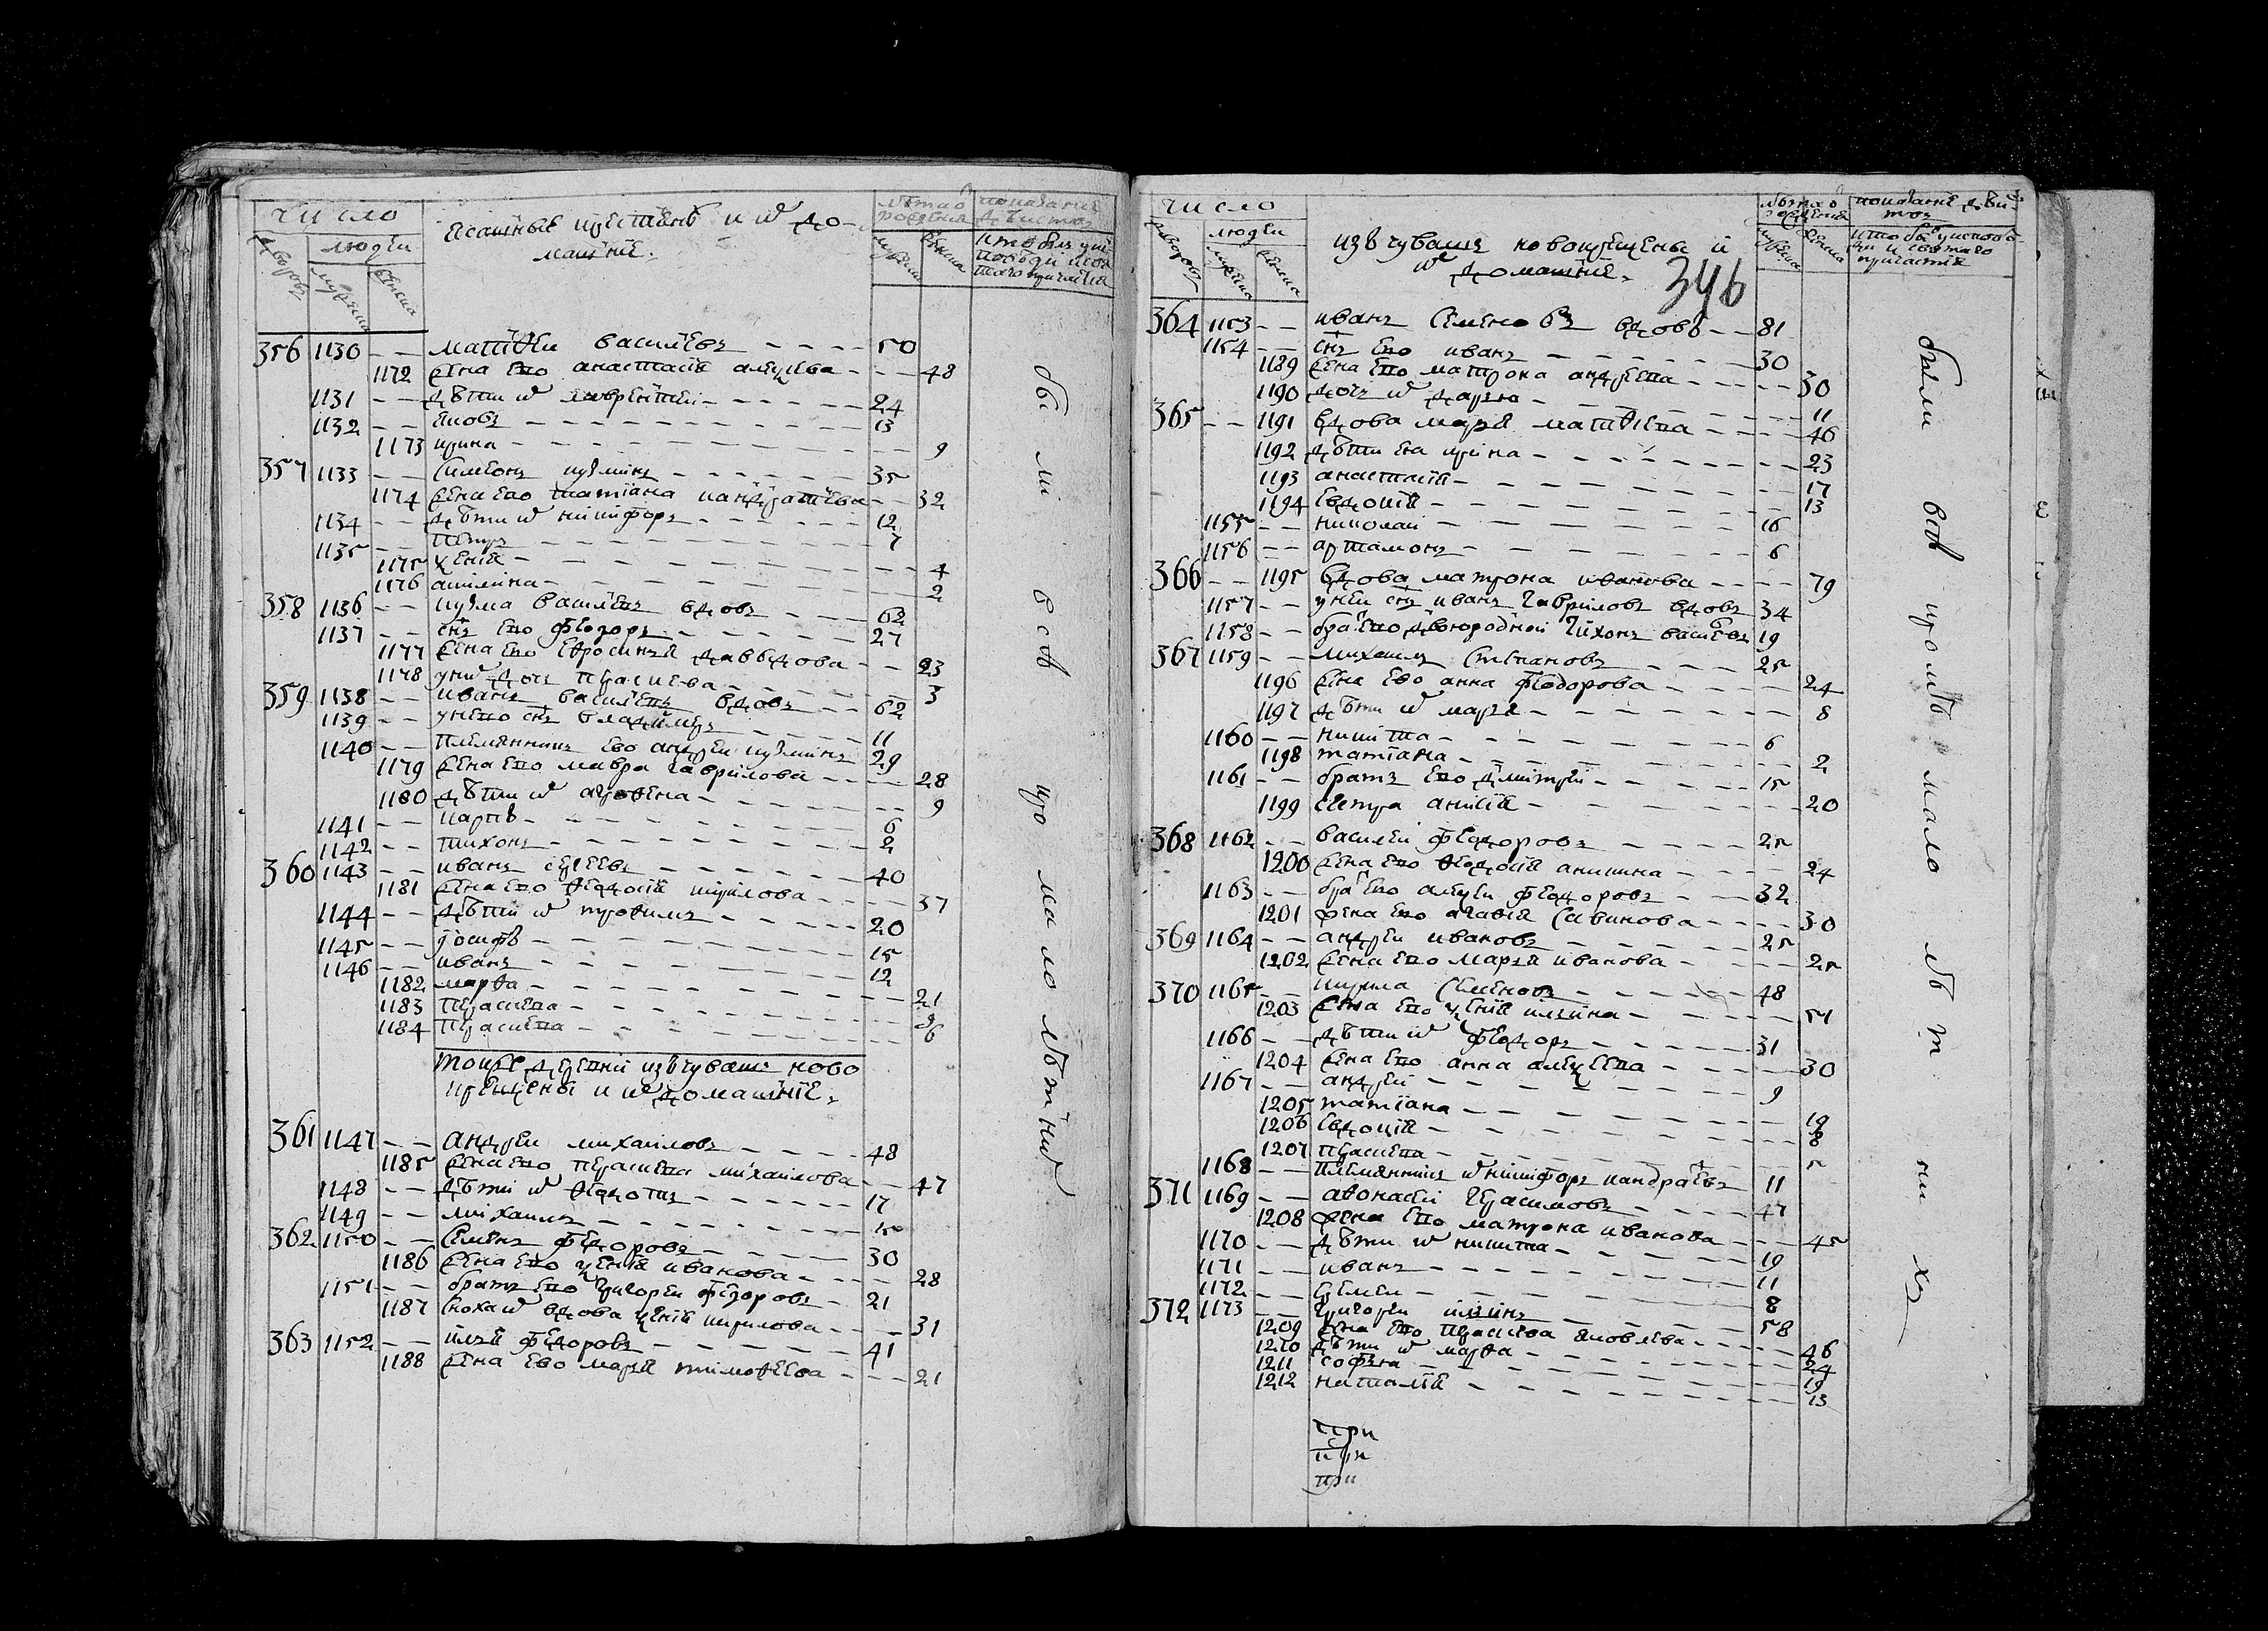 число
людей
дворовъ
мужеска
женска
ясашные крестьянѣ и ихъ до-
машние.
лѣта о рожденiя
мужеска
женска
356 1130 -- матѳеи василевъ ---- 50
1172 жена ево анастасiя алеѯеева --- 48
1131 -- дѣти ихъ лаврентеи ---- 24
1132 -- яковъ ---- 13
1173 ирина ---- 9
357 1133 -- симеонъ кузминъ ---- 35
1174 жена ево татiана кандратiева -- 32
1134 -- дѣти ихъ никифоръ ---- 12
1135 -- петръ ---- 7
1175 ѯения ---- 4
1176 акилина ---- 2
358 1136 -- кузма василевъ вдовъ -- 62
1137 -- снъ ево феодоръ ---- 27
1177 жена ево евросинья давыдова -- 23
1178 у них дочь прасковя ---- 3
359 1138 -- иванъ василевъ вдовъ -- 62
1139 -- у него снъ владимеръ ---- 11
1140 -- племянникъ ево андреи кузминъ 29
1179 жена ево мавра гаврилова ---- 28
1180 дѣти ихъ аграѳена ---- 9
1141 -- карпъ ---- 6
1142 -- тихонъ ---- 2
360 1143 -- иванъ сергеевъ ---- 40
1181 жена ево ѳедосiя кирилова ---- 37
1144 -- дѣти ихъ троѳимъ ---- 20
1145 -- iосифъ ---- 15
1146 -- иванъ ---- 12
1182 марѳа ---- 21
1183 прасковя ---- 9
1184 прасковя ---- 6
тоиже деревни изъ чувашъ ново
крещены и их домашнiе.
361 1147 -- андреи михаиловъ ---- 48
1185 жена ево прасковя михаилова -- 47
1148 -- дѣти ихъ ѳедотъ ---- 17
1149 -- михаилъ ---- 15
362 1150 -- семенъ федоровъ ---- 30
1186 жена ево ѯения иванова ---- 28
1151 -- братъ ево григореи федоровъ - 21
1187 сноха их вдова ѯения кирилова --- 31
363 1152 -- илья федоровъ ---- 41
1188 жена ево марья тимоѳеева --- 21
бы ли всѣ про ма ло лѣтнихъ
число
людей
дворовъ
мужеска
женска
изъ чувашъ новокрещены и
их домашние.
346
мужеска
женска
364 1153 -- иванъ семеновъ вдовъ -- 81
1154 -- снъ ево иванъ ---- 30
1189 жена ево матрона андреева ---- 30
1190 дочь ихъ дарья ---- 11
365 -- 1191 вдова марья матѳеева ---- 46
1192 дѣти ея ирина ---- 23
1193 анастасiя ---- 17
1194 евдокiя ---- 13
1155 -- николаи ---- 16
1156 -- артамонъ ---- 6
366 -- 1195 вдова матрона иванова ---- 79
1157 -- у неи снъ иванъ гавриловъ вдовъ 34
1158 -- братъ ево двоюродной тихонъ васильевъ 19
367 1159 -- михаилъ степановъ ---- 25
1196 жена ево анна феодорова ---- 24
1197 дѣти ихъ марья ---- 8
1160 -- никита ---- 6
1198 татiана ---- 2
1161 -- братъ ево дмитреи ---- 15
1199 сестра анисiя ---- 20
368 1162 -- василеи феодоровъ ---- 25
1200 жена ево ѳедосiя аникина ---- 24
1163 -- братъ ево алеѯеи феодоровъ -- 32
1201 жена ево агаѳiя савинова ---- 30
369 1164 -- андреи ивановъ ---- 25
1202 жена ево марья иванова ---- 25
370 1165 -- кирила семеновъ ---- 48
1203 жена ево ѯения ильина ---- 51
1166 -- дѣти ихъ феодоръ ---- 31
1204 жена ево анна алеѯеева ---- 30
1167 -- андреи ---- 9
1205 татiана ---- 19
1206 евдокiя ---- 8
1207 прасковя ---- 5
1168 -- племянникъ их никифоръ кандратевъ 11
371 1169 -- аѳонасеи герасимовъ ---- 47
1208 жена ево матрона иванова --- 45
1170 -- дѣти ихъ никита ---- 19
1171 -- иванъ ---- 11
1172 -- семенъ ---- 8
372 1173 -- григореи ильинъ ---- 58
1209 жена ево прасковя яковлева ---- 46
1210 дѣти ихъ марѳа ---- 24
1211 софья ---- 19
1212 наталiя ---- 13
были всѣ кромѣ мало лѣт ни хъ
при
при
при